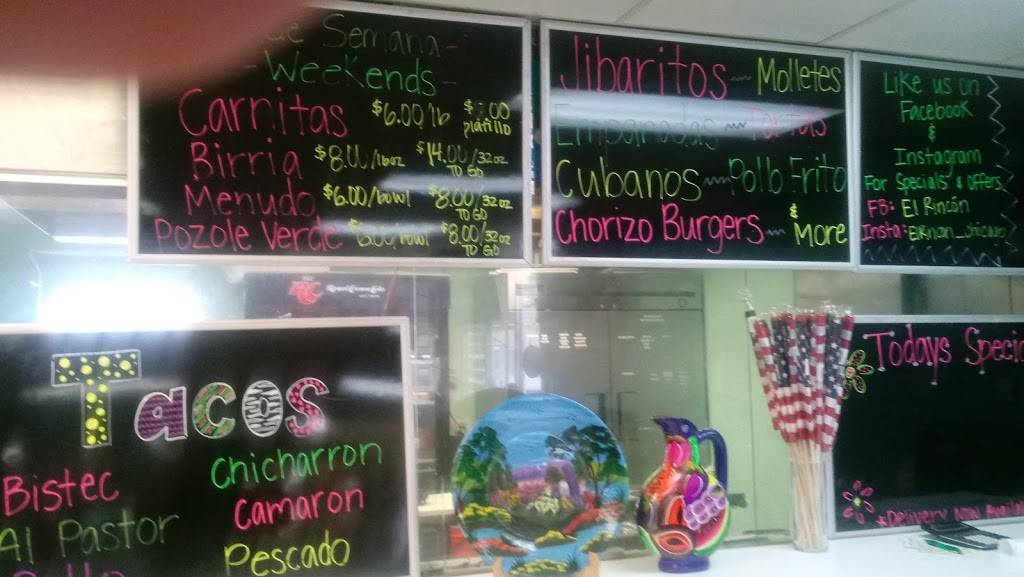 de Semana -
- Weekends -
Carnitas $6.00/lb $ .00 platillo
Birria $8.00/16oz $14.00/32oz TO GO
Menudo $6.00/bowl $8.00/32oz TO GO
Pozole Verde $6.00/bowl $8.00/32oz TO GO
Jibaritos ~ Molletes
Empanadas ~ Tortas
Cubanos ~ Pollo Frito
Chorizo Burgers ~ & More
Like us on
Facebook
&
Instagram
For Specials & Offers
FB: El Rincón
Insta:
Tacos
Bistec
Al Pastor
Chicharron
Camaron
Pescado
Todays Speci
+Delivery Now Availab
RC